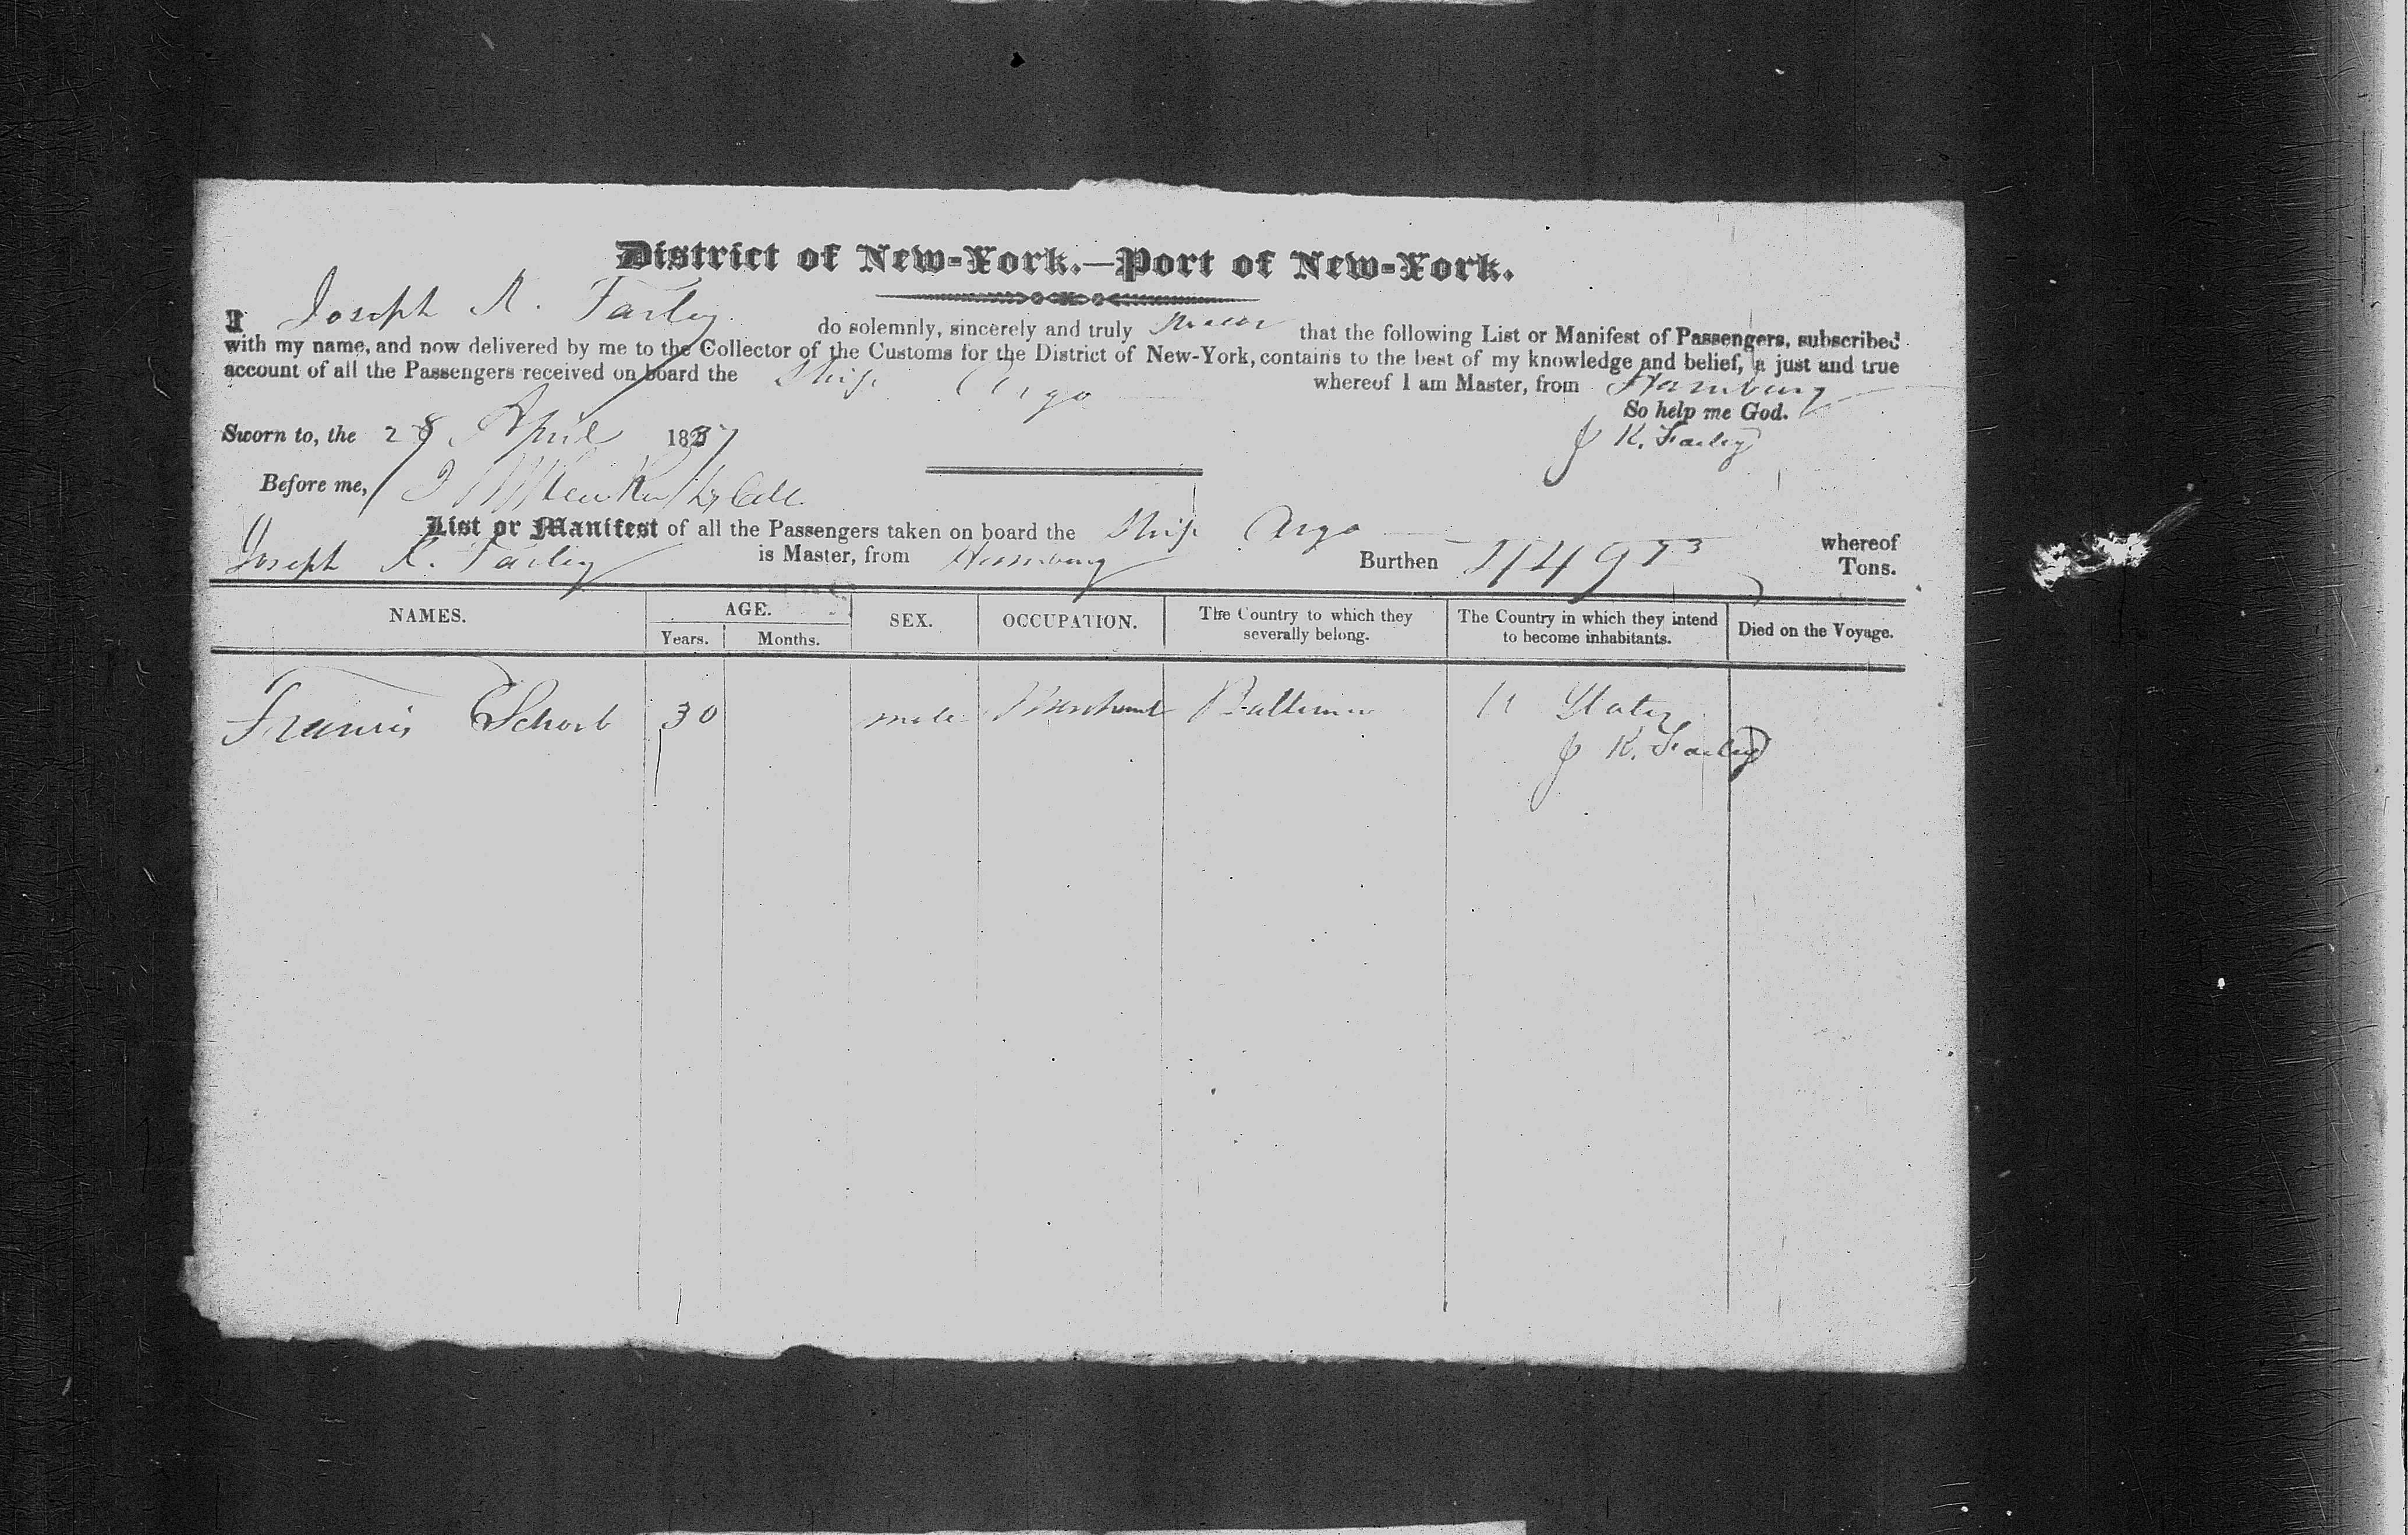 District of New-York.—Port of New-York.
I Joseph K. Farley do solemnly, sincerely and truly swear that the following List or Manifest of Passengers, subscribed
with my name, and now delivered by me to the Collector of the Customs for the District of New-York, contains to the best of my knowledge and belief, a just and true
account of all the Passengers received on board the Ship Argo whereof I am Master, from Hamburg
So help me God.
Sworn to, the 28 April 1837 J K. Farley
Before me,
List or Manifest of all the Passengers taken on board the Ship Argo whereof
Joseph K. Farley is Master, from Hamburg Burthen Tons.
NAMES. AGE. SEX. OCCUPATION. The Country to which they severally belong. The Country in which they intend to become inhabitants. Died on the Voyage.
Years. Months.
Francis 30 male Merchant Baltimore U States
J K. Farley